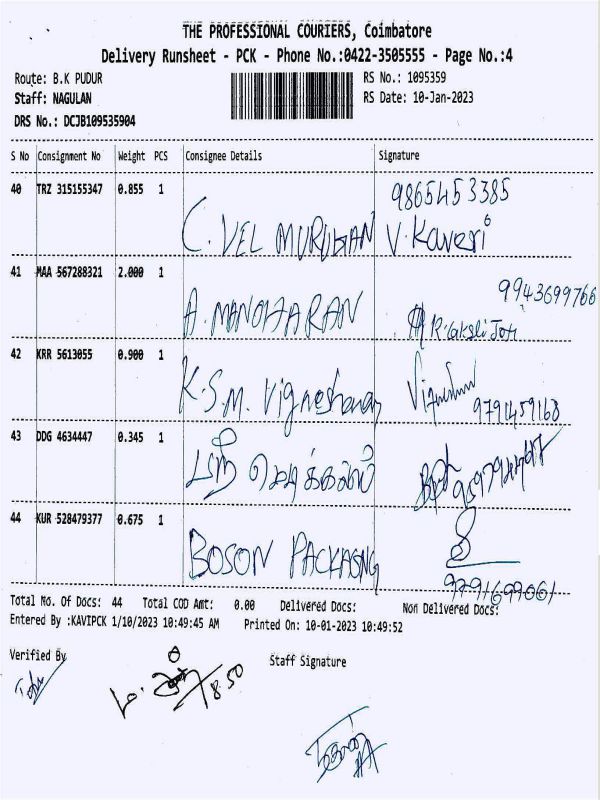 THE PROFESSIONAL COURIERS, Coimbatore
Delivery Runsheet - PCK - Phone No.:0422-3505555 - Page No.:4
Route: B.K PUDUR RS No.: 1095359
Staff: NAGULAN RS Date: 10-Jan-2023
DRS No.: DCJB109535904
S No Consignment No Weight PCS Consignee Details Signature
40 TRZ 315155347 0.855 1 C. VEL MURUGAN 9865453385
V. Kaveri
41 MAA 567288321 2.000 1 A. MANOHARAN 9943699766
42 KRR 5613055 0.900 1 K.S.M. Vigneshwaran
9791459168
43 DDG 4634447 0.345 1 ஸ்ரீ மெடிக்கல்ஸ்
44 KUR 528479377 0.675 1 BOSON PACKAGING
9791699061
Total No. Of Docs: 44 Total COD Amt: 0.00 Delivered Docs: Non Delivered Docs:
Entered By :KAVIPCK 1/10/2023 10:49:45 AM Printed On: 10-01-2023 10:49:52
Verified By Staff Signature
8.50